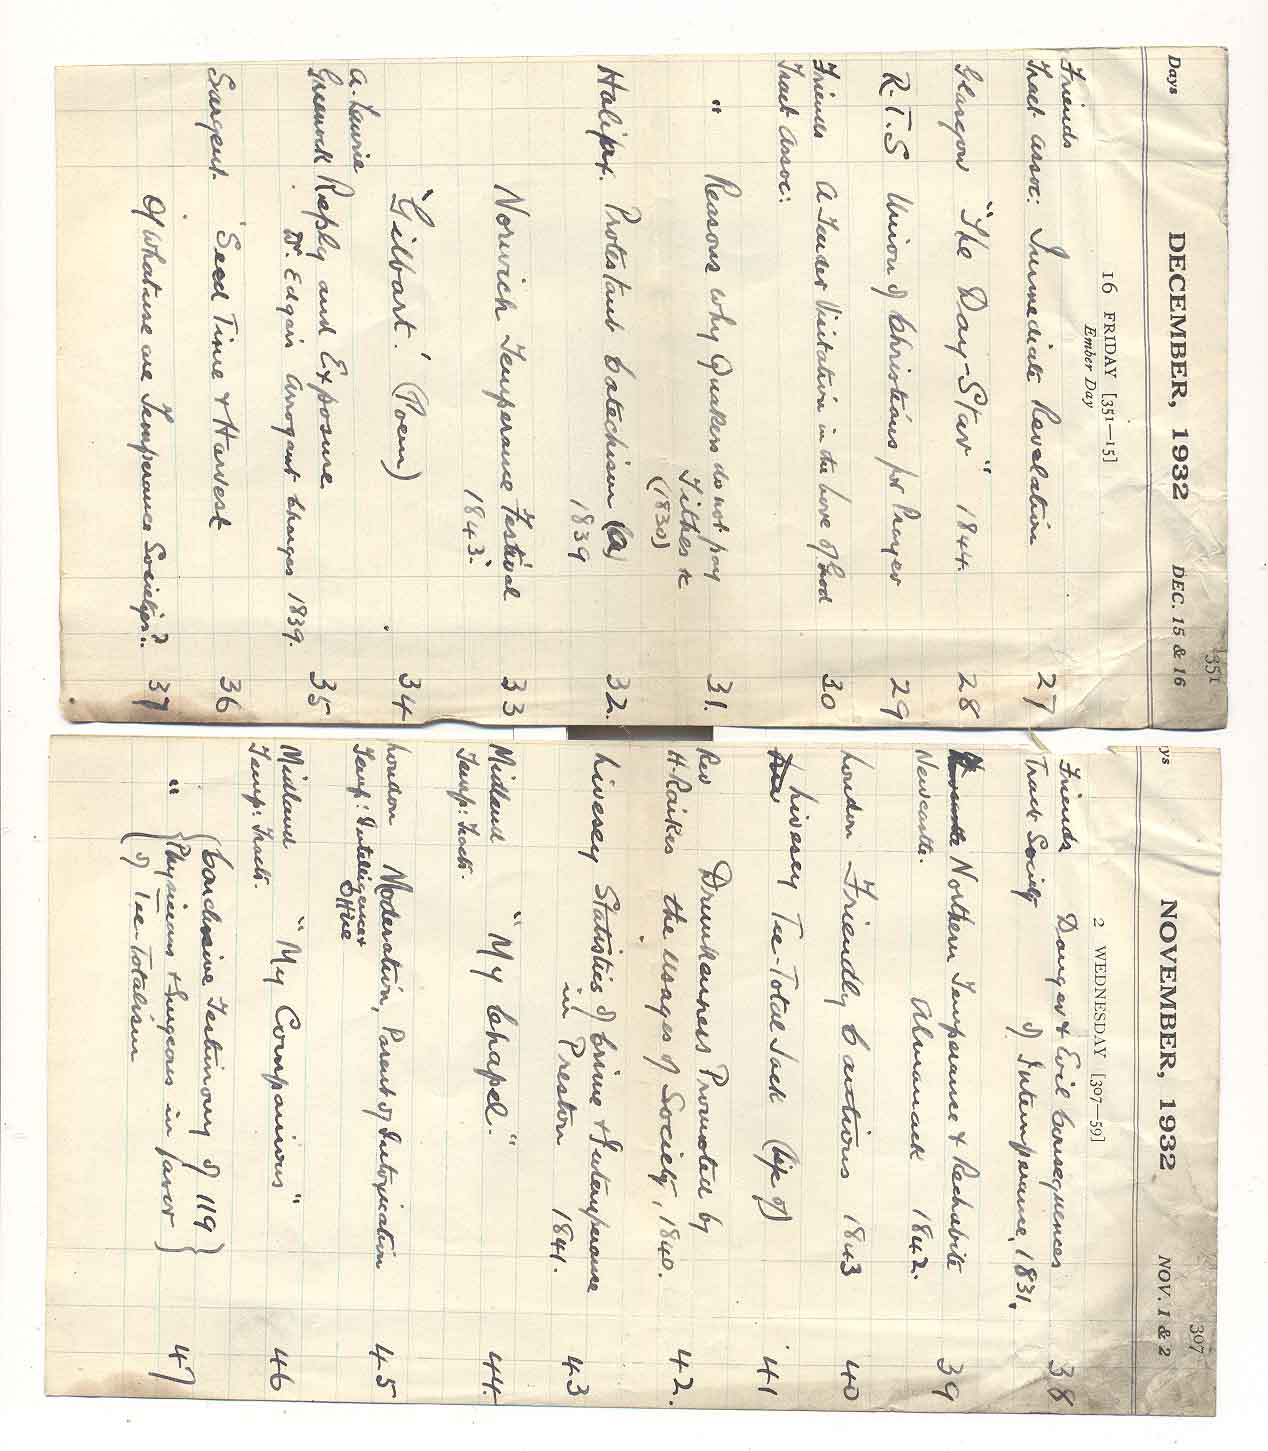 351
Days DECEMBER, 1932 DEC. 15 & 16
16 FRIDAY [351—15]
Ember Day
Friends
Tract Assoc: Immediate Revelation 27
Glasgow "The Day-Star" 1844. 28
R.T.S Union of Christians for Prayer 29
Friends A Tender Visitation in the love of God 30
Tract Assoc:
" Reasons why Quakers do not pay 31.
Tithes &c
(1830)
Halifax. Protestant Catechism (a) 32.
1839
Norwich Temperance Festival 33
1843.
"Gilbart.' (Poem) 34
A. Lawrie
Greenock Reply and Exposure 35
Dr. Edgar's Arrogant Charges 1839.
Sargent. 'Seed Time & Harvest 36
Of What use are Temperance Societies? 37
307
ys NOVEMBER, 1932 NOV. 1 & 2
2 WEDNESDAY [307—59]
Friends Danger & Evil Consequences 38
Tract Society of Intemperance, 1831.
Northern Temperance & Rechabite 39
Newcastle. Almanack 1842.
London Friendly Cautions 1843 40
Livesey Tee-Total Jack (life of) 41
Rev Drunkenness Promoted by
H. Raikes the usages of Society, 1840. 42.
Livesey Statistics of Crime & Intemperance 43
in Preston 1841.
Midland "My Chapel." 44.
Temp: Tracts.
London Moderation, Parent of Intoxication 45
Temp: Intelligencer
Office
Midland "My Companions" 46
Temp: Tracts.
Conclusive Testimony of 119
" Physicians & Surgeons in favor 47
of Tee-Totalism